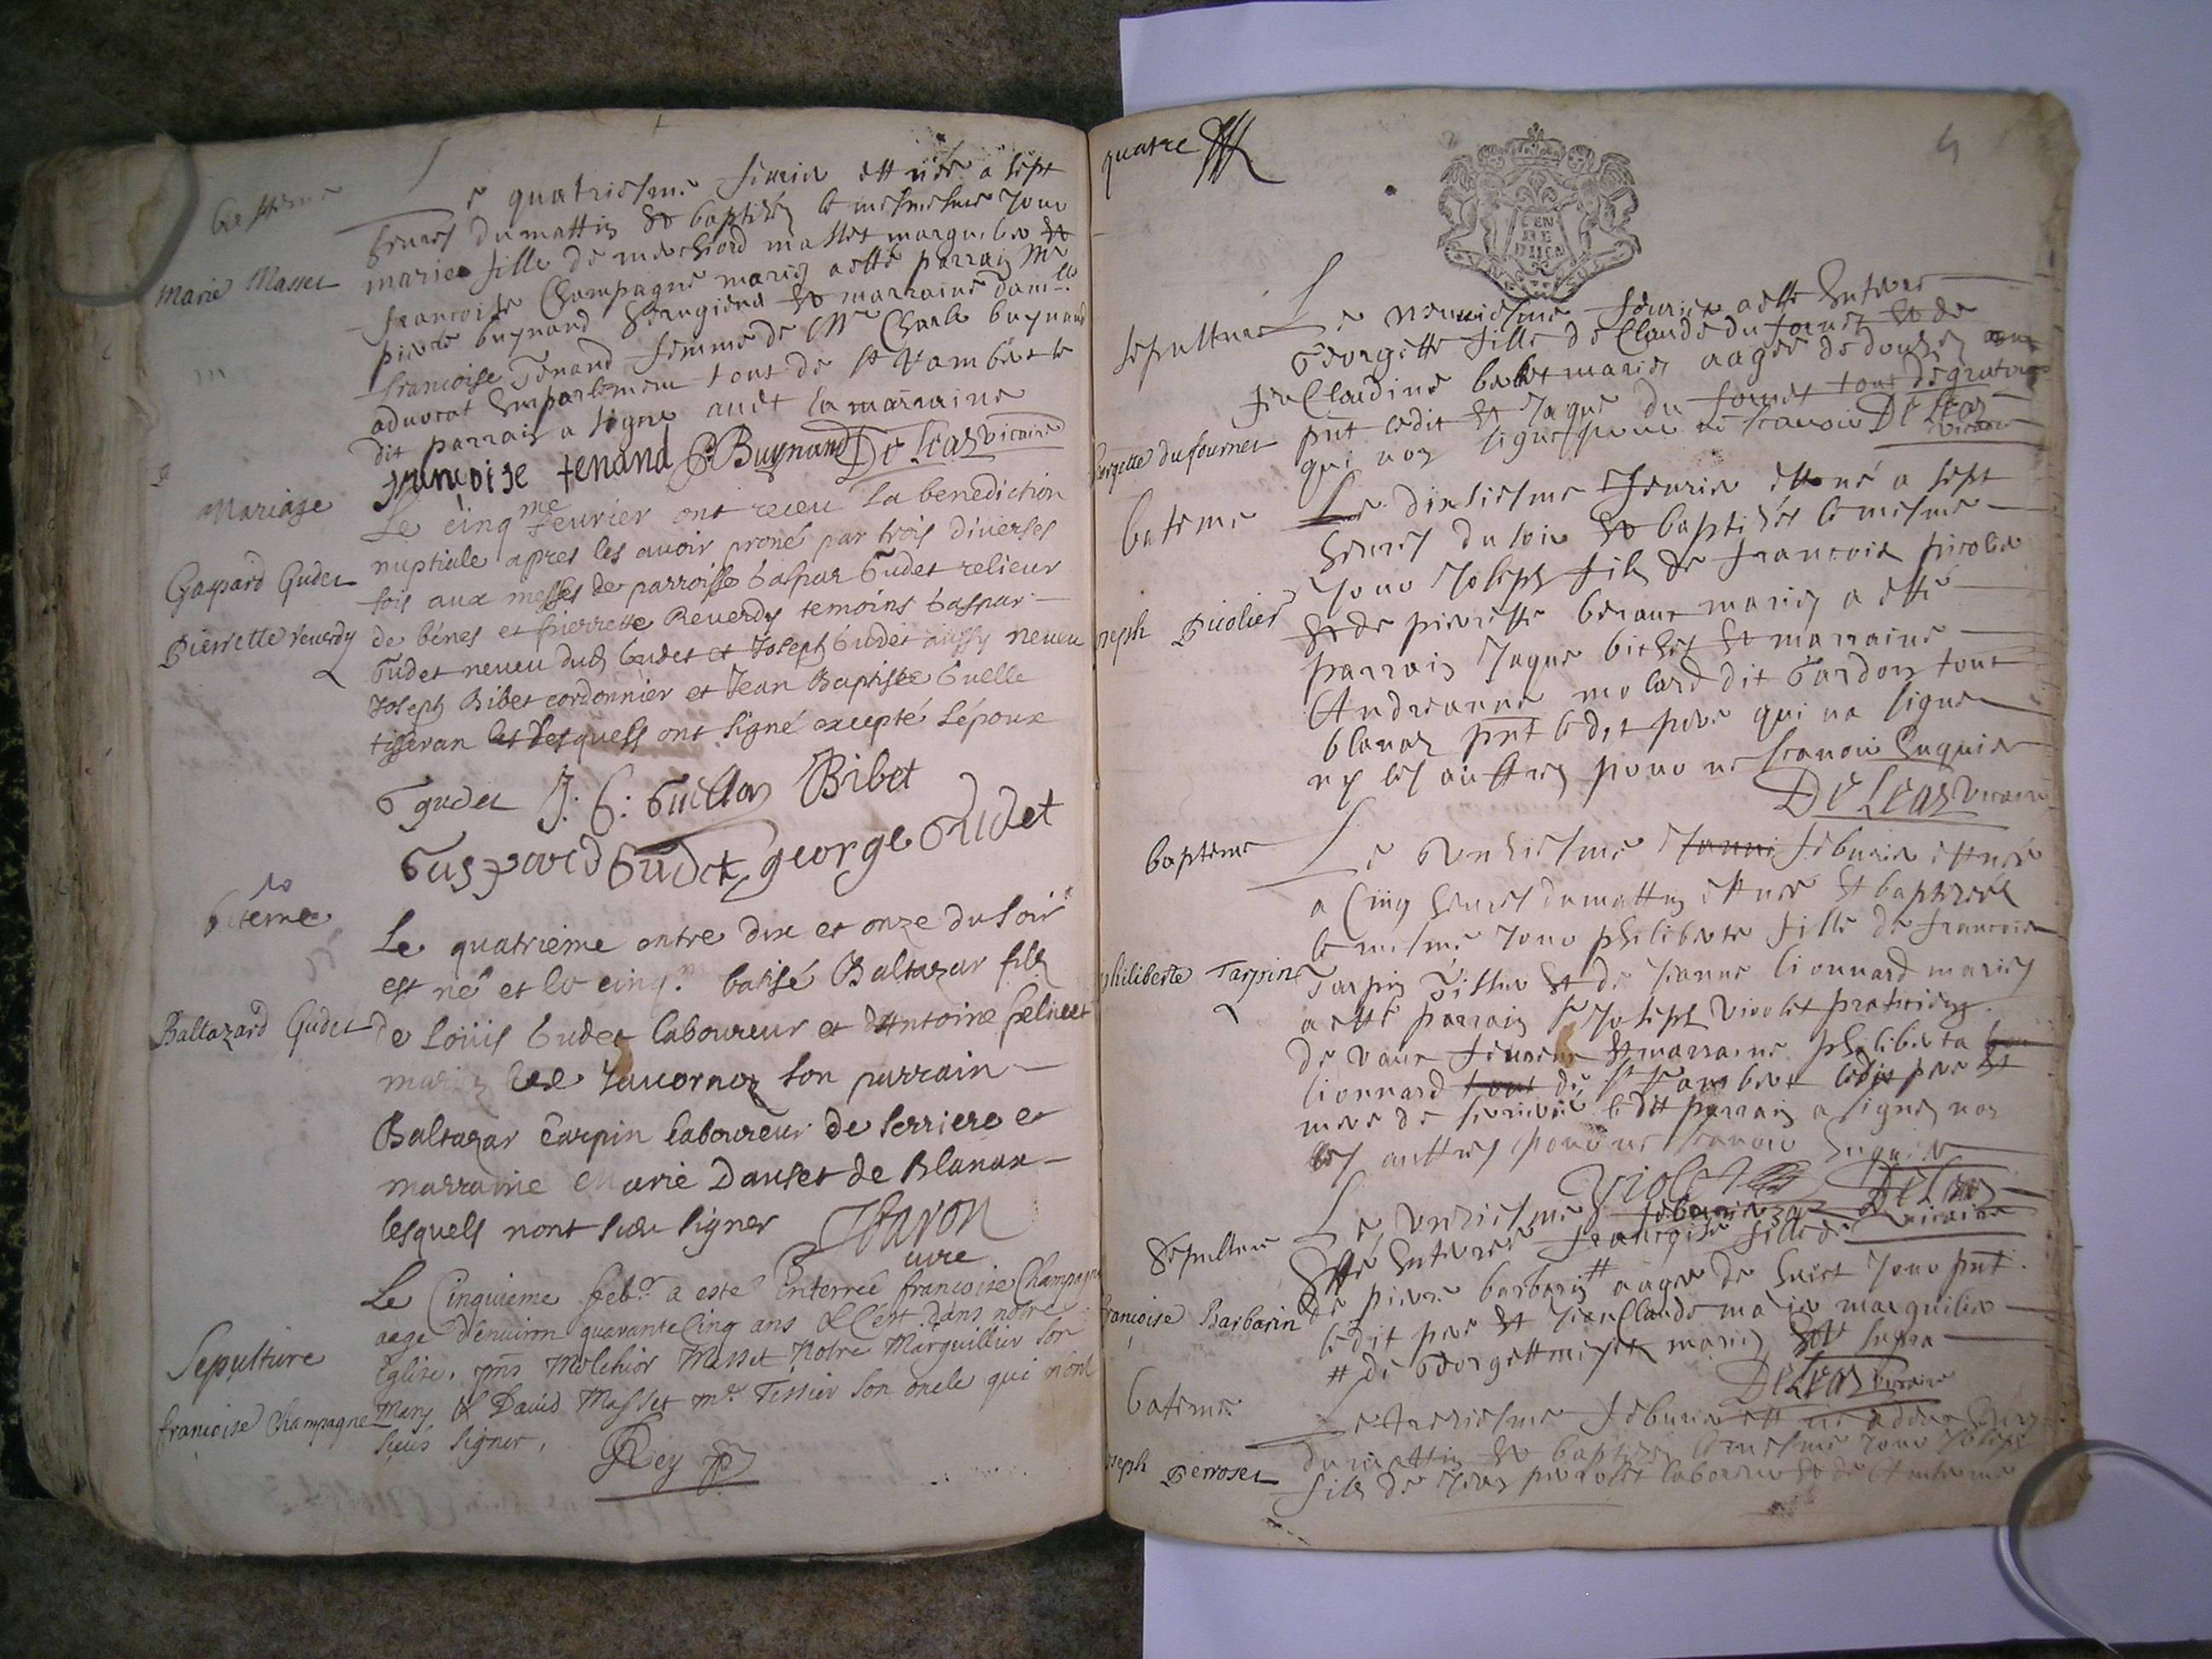 bapteme
Marie Masset
Le quatriesme feurier est née a sept
heures du mattin et baptizée le mesme jour
marie fille de merchiord masset marguelier et
francoise Champagne mariez a esté parrain Mre
pierre buynard chirugiens et marraine damlle
francoise Tenand femme de Mre Charle buynand
aduocat en parlement tous de st Rambert le
dit parrain a signe auec la marraine
françoise tenand P. Buynand De Lean vicaire
Mariage
Gaspard Gudet
Pierrette reuerdy
Le cinqme feurier ont receu la benediction
nuptiale apres les auoir proné par trois diuerses
fois aux messes de parroisse Gaspar Gudet relieur
de bénes et pierrette Reuerdy temoins Gaspar
Gudet neueu dud Gudet et Joseph Gudet aussy neueu
Joseph Bibet cordonnier et Jean Baptiste Guelle
tisseran et lesquels ont signé excepté l'épouse
G gudet J: B: Guillon Bibet
Gaspard Gudet george Gudet
bateme
Baltazard Gudet
Le quatrieme entre dix et onze du soir
est né et le cinq.e batisé Baltazar fils
de Loüis Gudet laboureur et dAntoine
mariez de Jauornoz son parrain
Baltazar Carpin laboureur de serriere et
marraine Marie Dauset de Blanax
lesquels nont sceu signer
cure
Sepulture
francoise Champagne
Le Cinquieme feb.r a esté Enterrée francoise Champagne
aage denuiron quarante Cinq ans & C'est dans notre
Eglise. pns Melchior Masset Notre Marguillier son
Mary & Dauid Masset md Tessier son oncle qui n'ont
sceus signer. Rey
quatre
4
GEN
DE
sepulture
Georgette dufournet
Le neuuiesme feurier a esté Enterré
Georgette fille de Claude du fournet et de
feu Claudine babet mariez aagee de douze ans
pnt ledit et Jaque du fournet tous de
qui non signe pour ne scauoir De Lean
vicaire
bateme
Joseph Picolier
Le dixiesme feurier est né a sept
heures du soir et baptizés le mesme
jour Joseph fils de francois picolier
et de pierrette beraut mariez a esté
parrain Jaque bichet et marraine
Andreanne molard dit Gardon tout
blanaz pnt ledit pere qui na signe
ny les auttres pour ne scauoir Enquis
De Lean vicaire
bapteme
philiberte Tarpin
Le Onziesme Janui feburier est née
a Cinq heures du mattin est née et baptizée
le mesme jour philiberte fille de francois
Tarpin Tissier et de jeanne lionnard mariez
a esté parrain sr Joseph violet praticien
de vaux et marraine philiberta
lionnard tout de st Rambert ledit pere et
mere de ledit parrain a signez non
les auttres pour ne scauoir Enquis
Violet De Lean
vicaire
Sepulture
françoise Barbarin
Le Onziesme feburier a
Esté Enterrée francoise fille de
de pierre barbarin # aagee de huict jour pnt
ledit pere et jean Claude masset marguilier
# de Georgette mariez Et supra
De Lean vicaire
bateme
Joseph Perroset
Le treziesme feburier est né a deux heures
du mattin et baptizez le mesme jour Joseph
fils de Jean perroset laboureur et de Anthoine